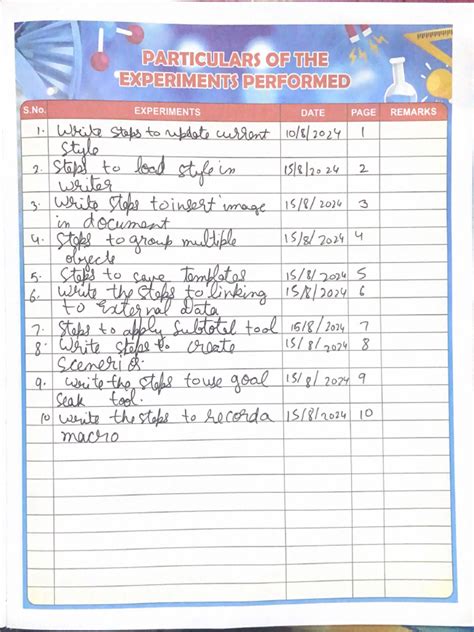 PARTICULARS OF THE
EXPERIMENTS PERFORMED
S.No. EXPERIMENTS DATE PAGE REMARKS
1. Write Steps to update current 10/8/2024 1
Style
2. Steps to load style in 15/8/2024 2
writer
3. Write Steps to insert image 15/8/2024 3
in document
4. Steps to group multiple 15/8/2024 4
objects
5. Steps to save Templates 15/8/2024 5
6. Write the Steps to linking 15/8/2024 6
to External Data
7. Steps to apply Subtotal tool 15/8/2024 7
8. Write steps to create 15/8/2024 8
Scenerios.
9. Write the steps to use goal 15/8/2024 9
Seak tool.
10 Write the steps to record a 15/8/2024 10
macro